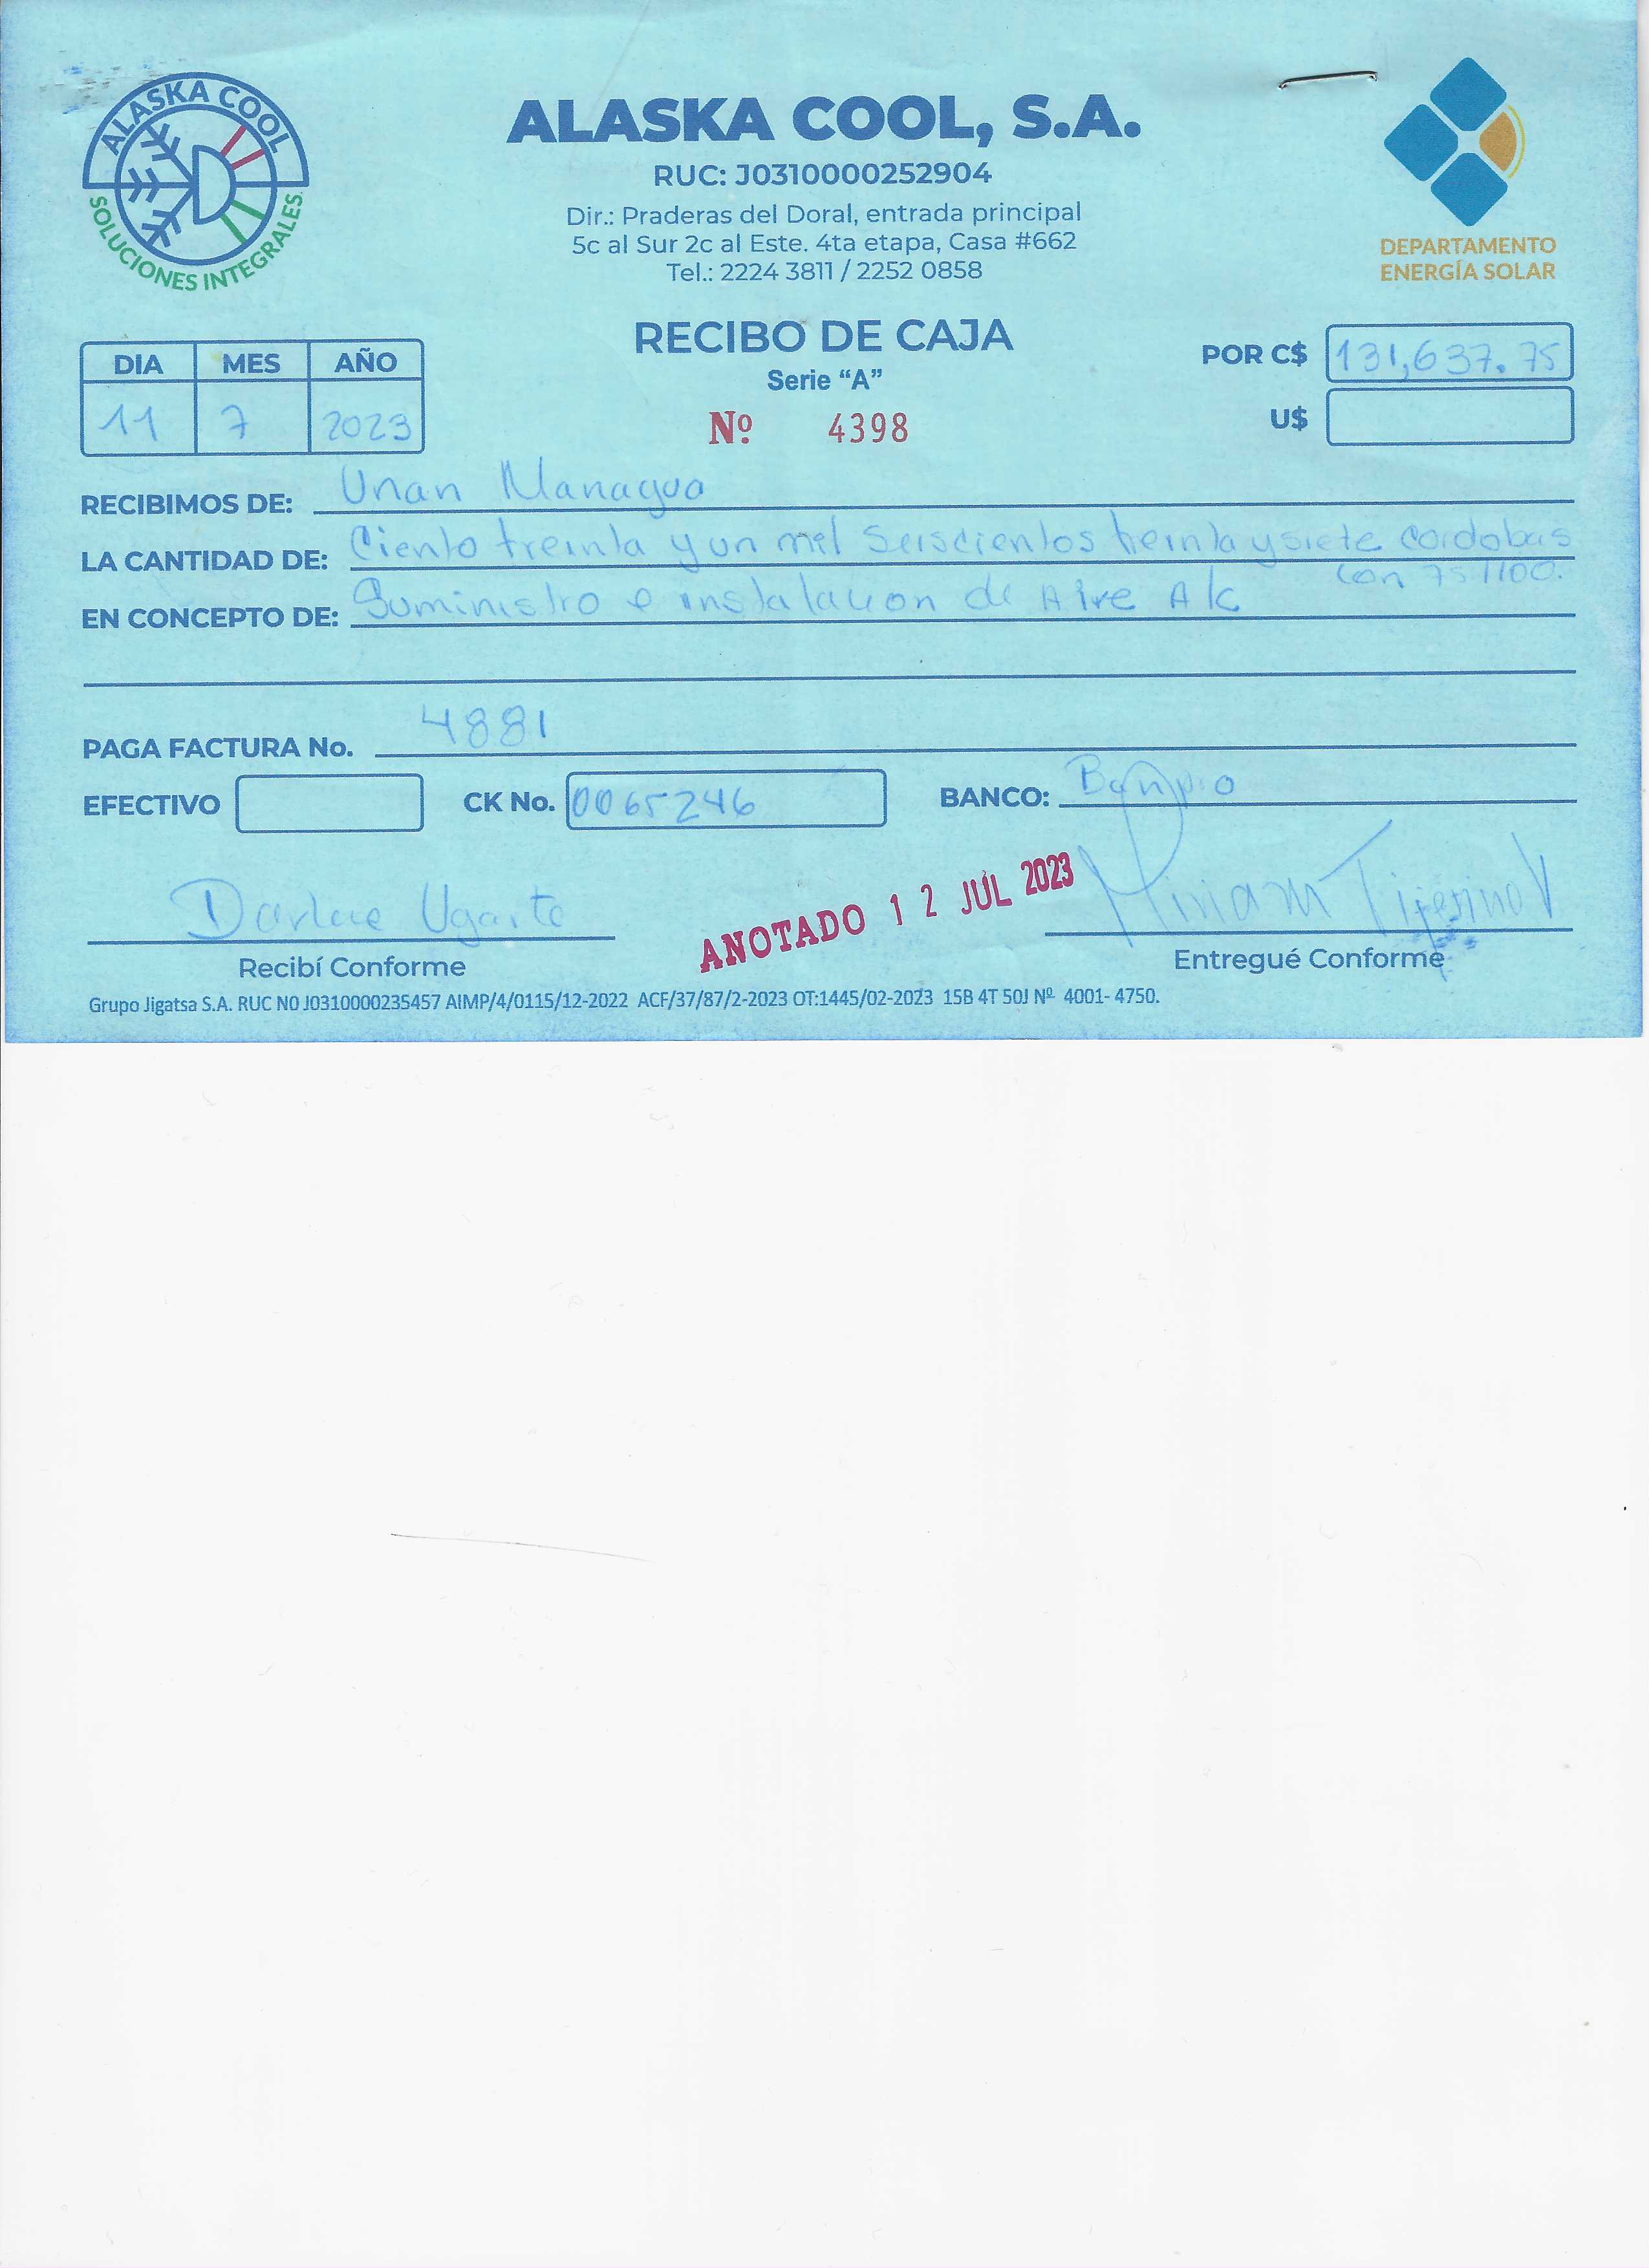 ALASKA COOL
SOLUCIONES INTEGRALES.
ALASKA COOL, S.A.
RUC: J0310000252904
Dir.: Praderas del Doral, entrada principal
5c al Sur 2c al Este. 4ta etapa, Casa #662
Tel.: 2224 3811 / 2252 0858
DEPARTAMENTO
ENERGÍA SOLAR
RECIBO DE CAJA
Serie “A”
Nº 4398
DIA MES AÑO
11 7 2023
POR C$ 131,637.75
U$
RECIBIMOS DE: Unan Managua
LA CANTIDAD DE: Ciento treinta y un mil Seiscientos treinta y siete cordobas
con 75/100.
EN CONCEPTO DE: Suministro e instalacion de Aire A/c
PAGA FACTURA No. 4881
EFECTIVO CK No. 0065246 BANCO:
Ugarte Miriam Tijerino V
ANOTADO 12 JUL 2023
Recibí Conforme Entregué Conforme
Grupo Jigatsa S.A. RUC N0 J0310000235457 AIMP/4/0115/12-2022 ACF/37/87/2-2023 OT:1445/02-2023 15B 4T 50J Nº 4001- 4750.